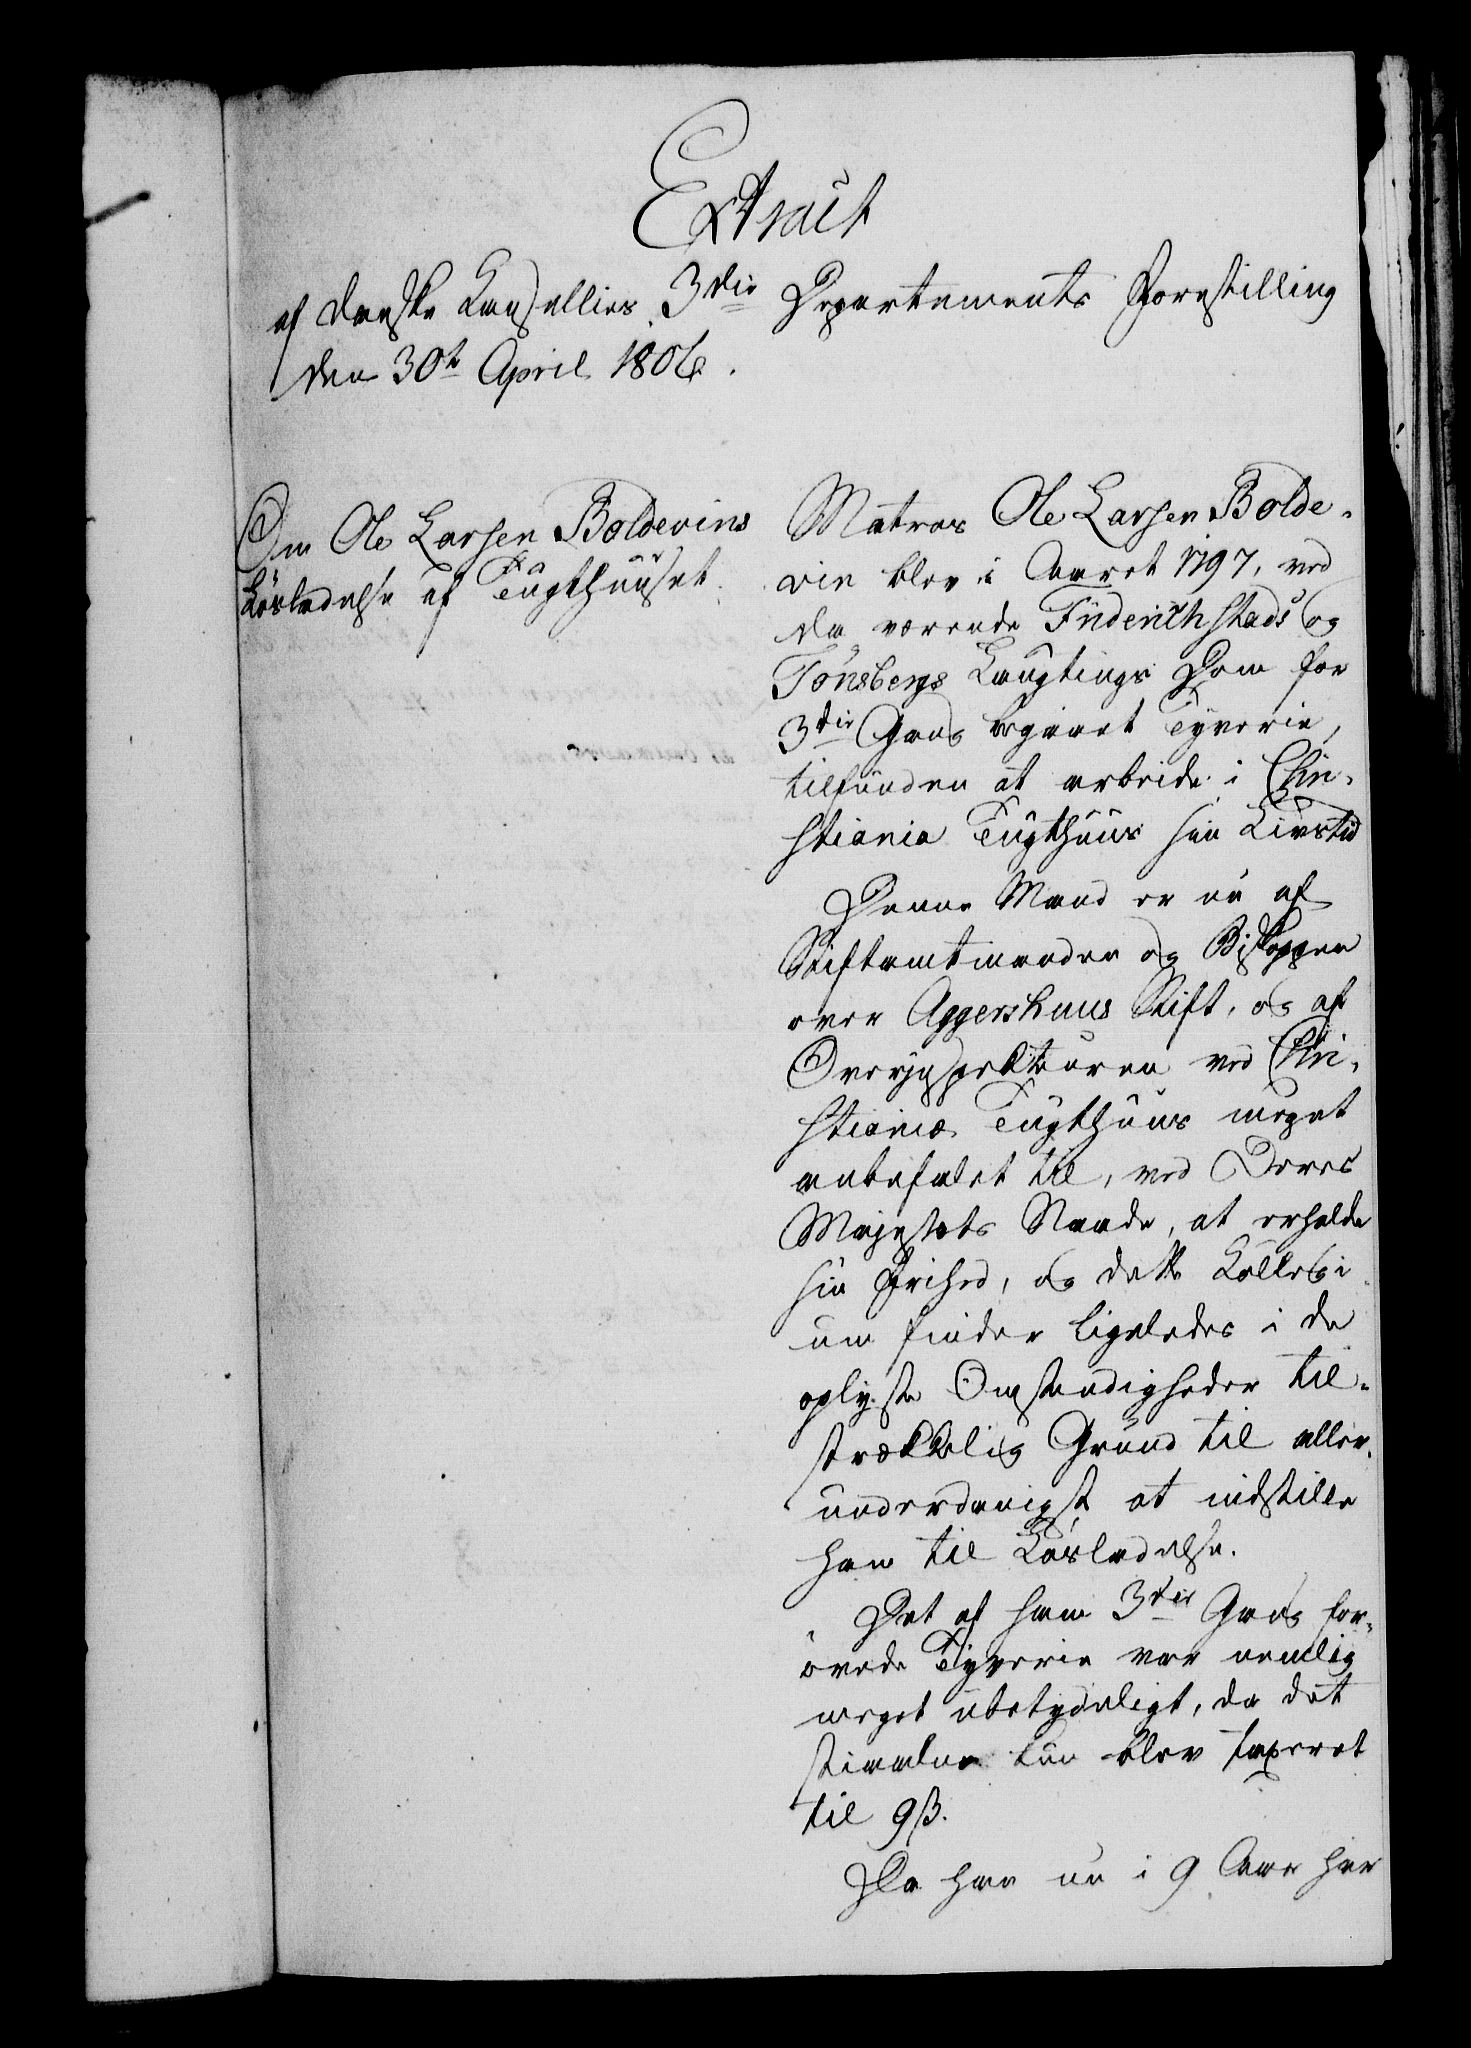 Extract
af danske Kancellies 3die Departements Forestilling
den 30te April 1806.
Om Ole Larsen Boldevins
Løsladelse af Tugthuuset.
Matros Ole Larsen Bolde-
vin blev i Aaret 1797, ved
da værende Friderichstads og
Tönsbergs Laugtings Dom for
3die Gang begaaet Tyverie,
tilfunden at arbeide i Chri-
stiania Tugthuus sin Livstid
Denne Mand er nu af
Stiftamtmanden og Biskoppen
over Aggershuus Stift, og af
Overinspekteuren ved Chri-
stiania Tugthuus meget
anbefalet til, ved Deres
Majestæts Naade, at erholde
sin Frihed, og dette Kollegi-
um finder ligeledes i de
oplyste Omstændigheder til-
strækkelig Grund til aller-
underdanigst at indstille
ham til Løsladelse.
Det af ham 3die Gang for-
øvede Tyverie var nemlig
meget ubetydeligt, da det
stiaalne kun blev taxeret
til 9 ß.
Da han nu i 9 Aar har